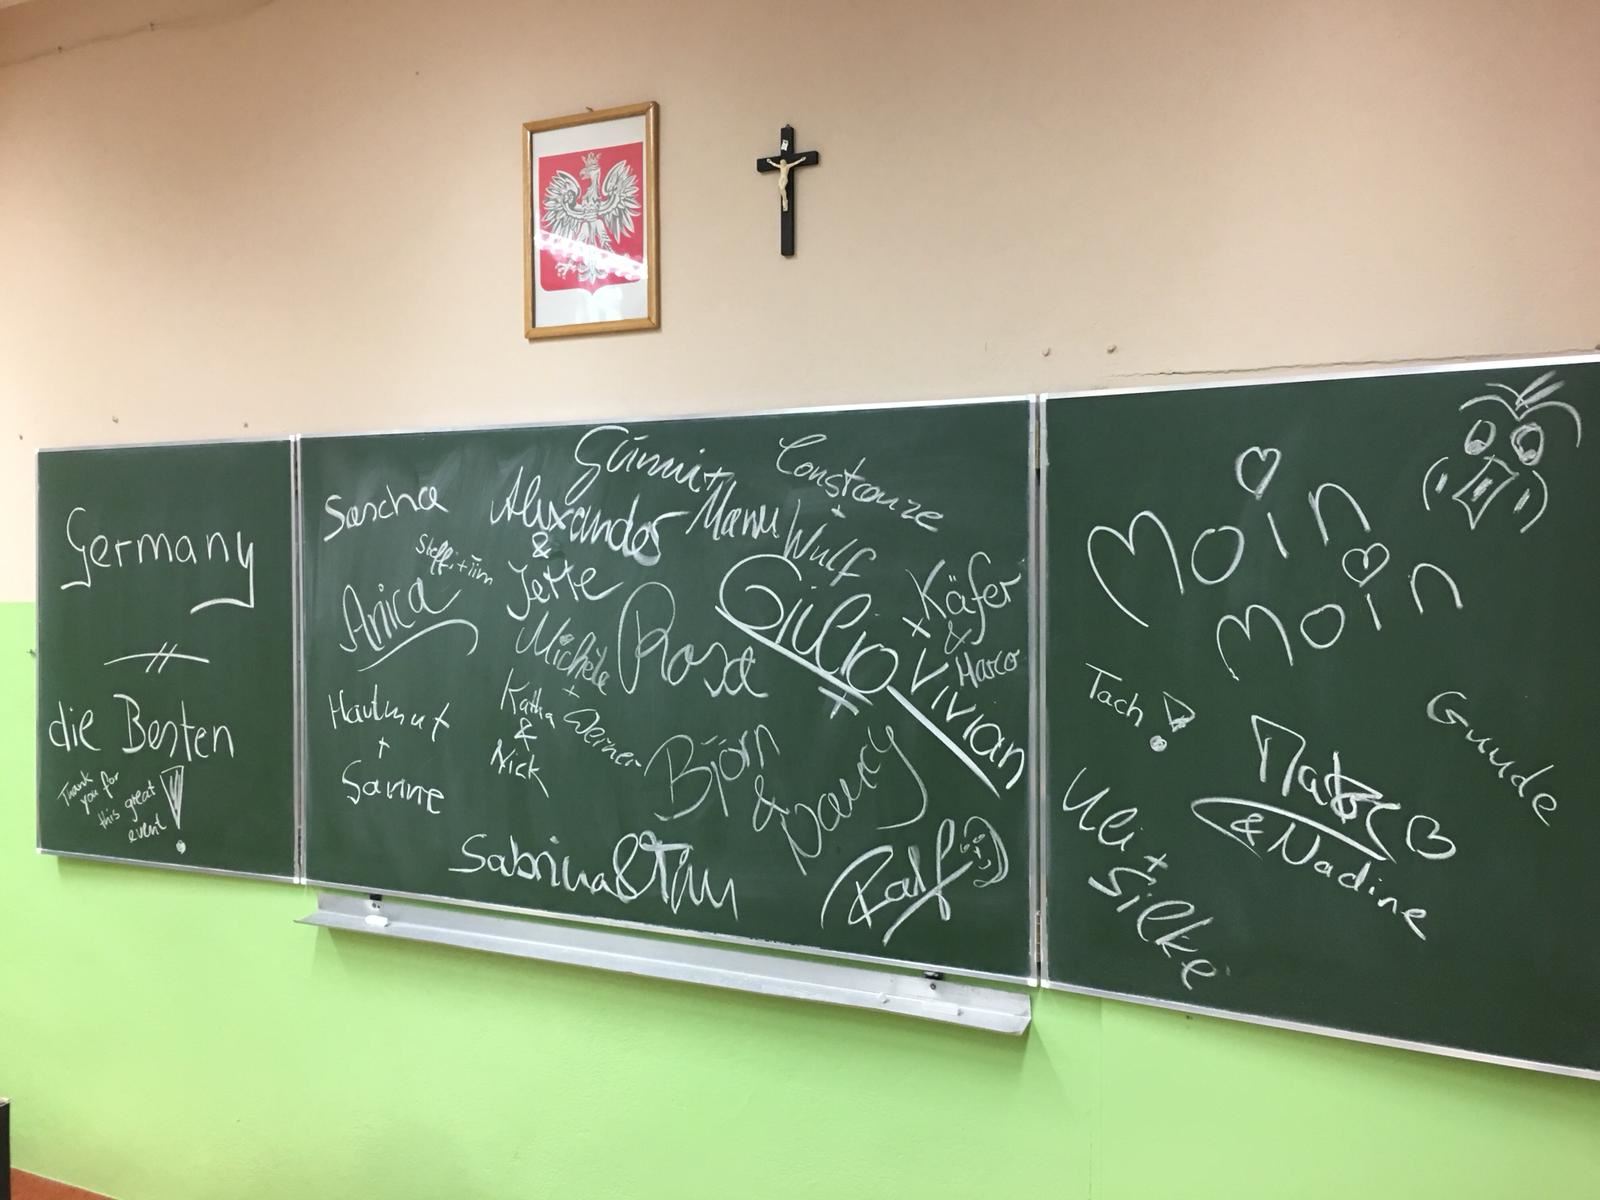 Germany
die Besten
Thank
you for
this great
event!
Günni +
Manu
Constanze
+
Wulf
Sascha
Alexander
&
Jette
Steffi + Tim
Anica
Michéle
+
Werner
Rosa
Giulio
+
Vivian
Käfer
&
Marco
Hartmut
+
Sanne
Katha
&
Nick
Björn
& Nancy
Sabrina & Tim
Ralf
Moin
Moin
Tach!
Guude
& Nadine
Uli +
Silke